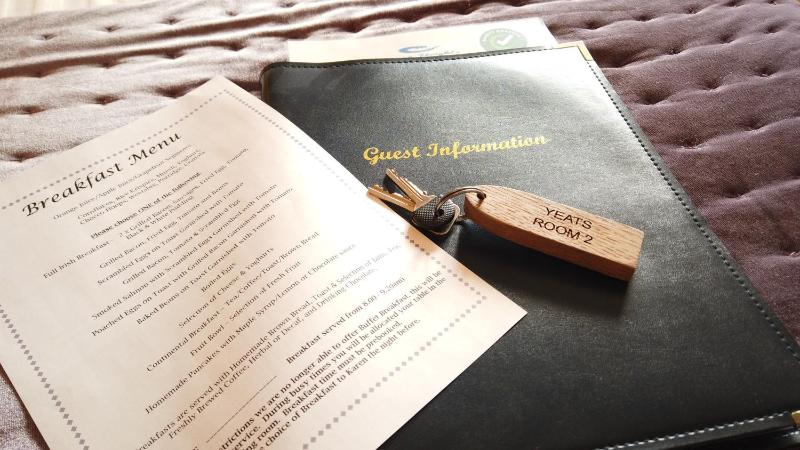 Guest Information
YEATS
ROOM 2
Breakfast Menu
Orange Juice/Apple Juice/Grapefruit Segments,
Cornflakes, Rice Krispies, Muesli, Yoghurt,
Choco Hoops, Weetabix, Porridge, Granola
Please choose ONE of the following.
Full Irish Breakfast - 2 x Grilled Bacon, Sausages, Fried Eggs, Tomato,
Black & White Pudding
Grilled Bacon, Fried Egg, Tomato and Beans
Scrambled Eggs on Toast Grilled with Tomato
Grilled Bacon, Tomato & Scrambled Egg
Smoked Salmon with Scrambled Eggs Garnished with Tomato
Poached Eggs on Toast with Grilled Tomato
Baked Beans on Toast Grilled with Tomato
Boiled Eggs
Selection of Cheese & Yoghurts
Continental Breakfast - Tea, Coffee/Toast/Brown Bread
Fruit Bowl - Selection of Fresh Fruit
Homemade Pancakes with Maple Syrup/Lemon or Chocolate sauce
are served with Homemade Brown Bread, Toast & Selection of Jams, Tea,
Freshly Brewed Coffee, Herbal or Decaf, and Drinking Chocolate.
Breakfast served from 8.00 - 9.20am)
we are no longer able to offer Buffet Breakfast, this will be
During busy times you will be allocated your table in the
room. Breakfast time must be prebooked.
choice of Breakfast to Karen the night before.